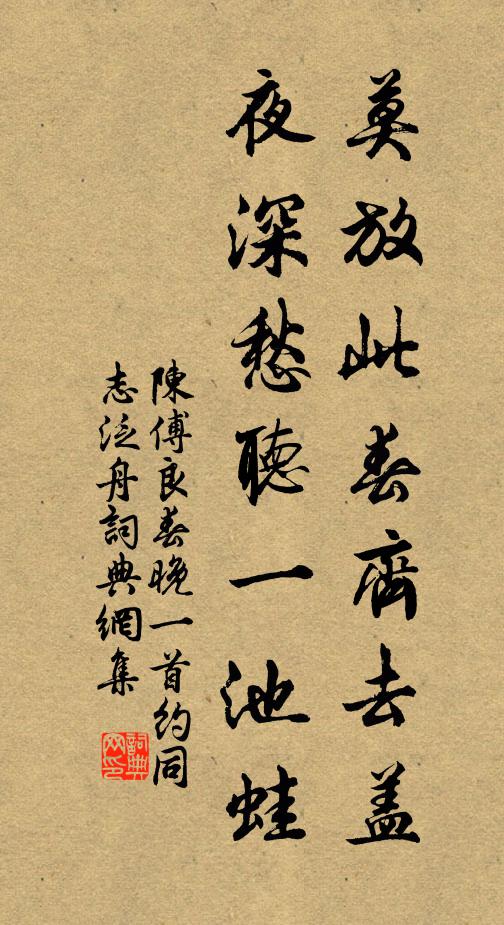 莫放此春齊去盖
夜深愁聽一池蛙
陳傅良春晚一首約同
志泛舟詞典網集
詞典網印